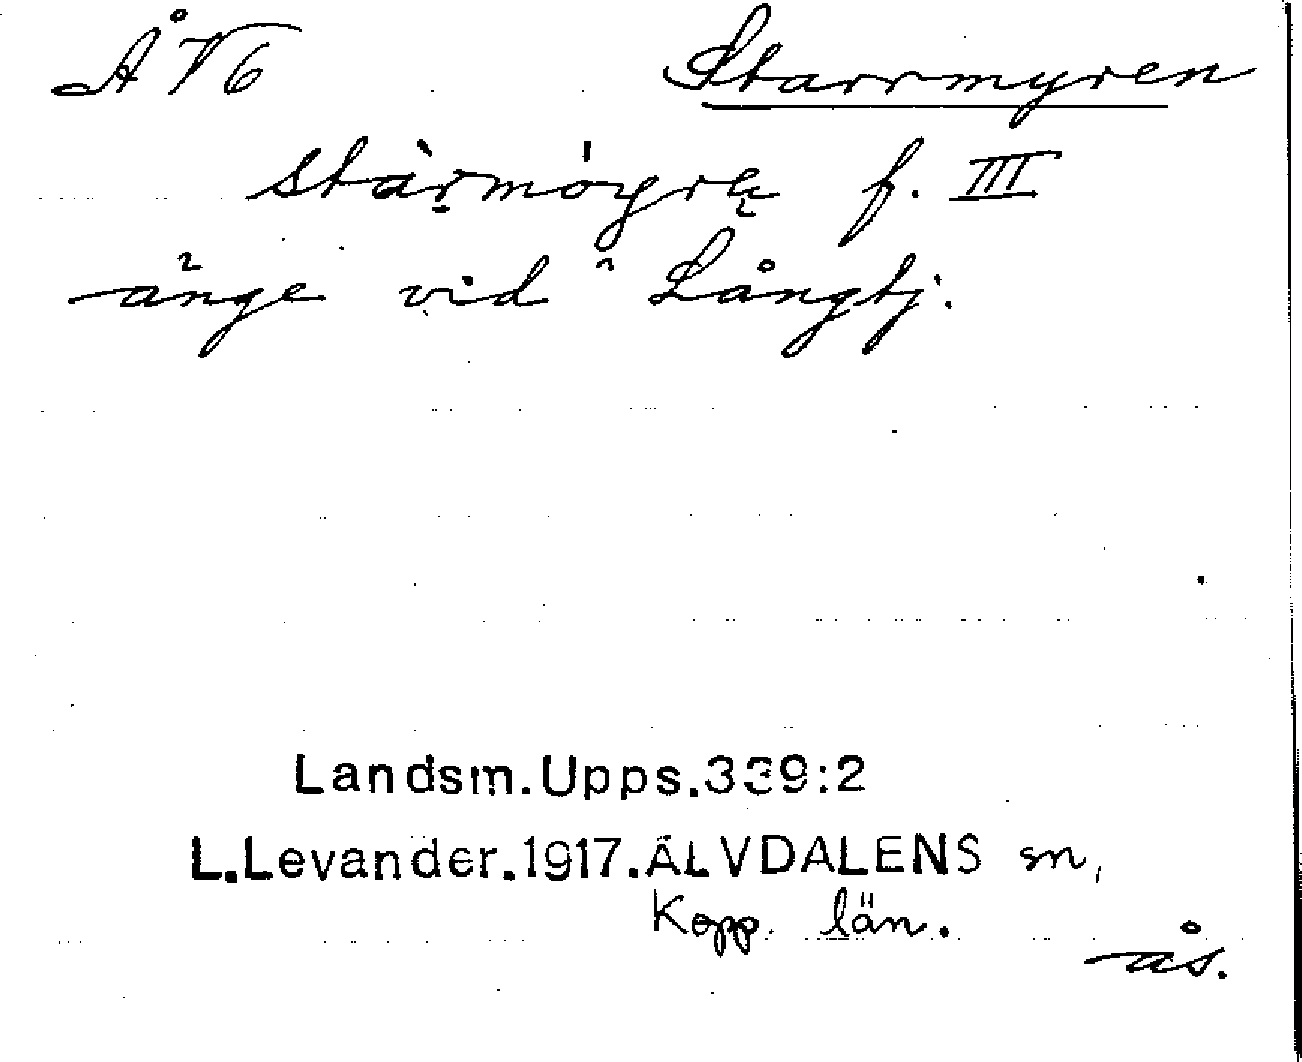 ÅV6 Starrmyren
stàr̠móyrę f. III
änge vid Långtj.
Landsm.Upps.339:2
L.Levander.1917.ÄLVDALENS sn,
Kopp. län.
ås.